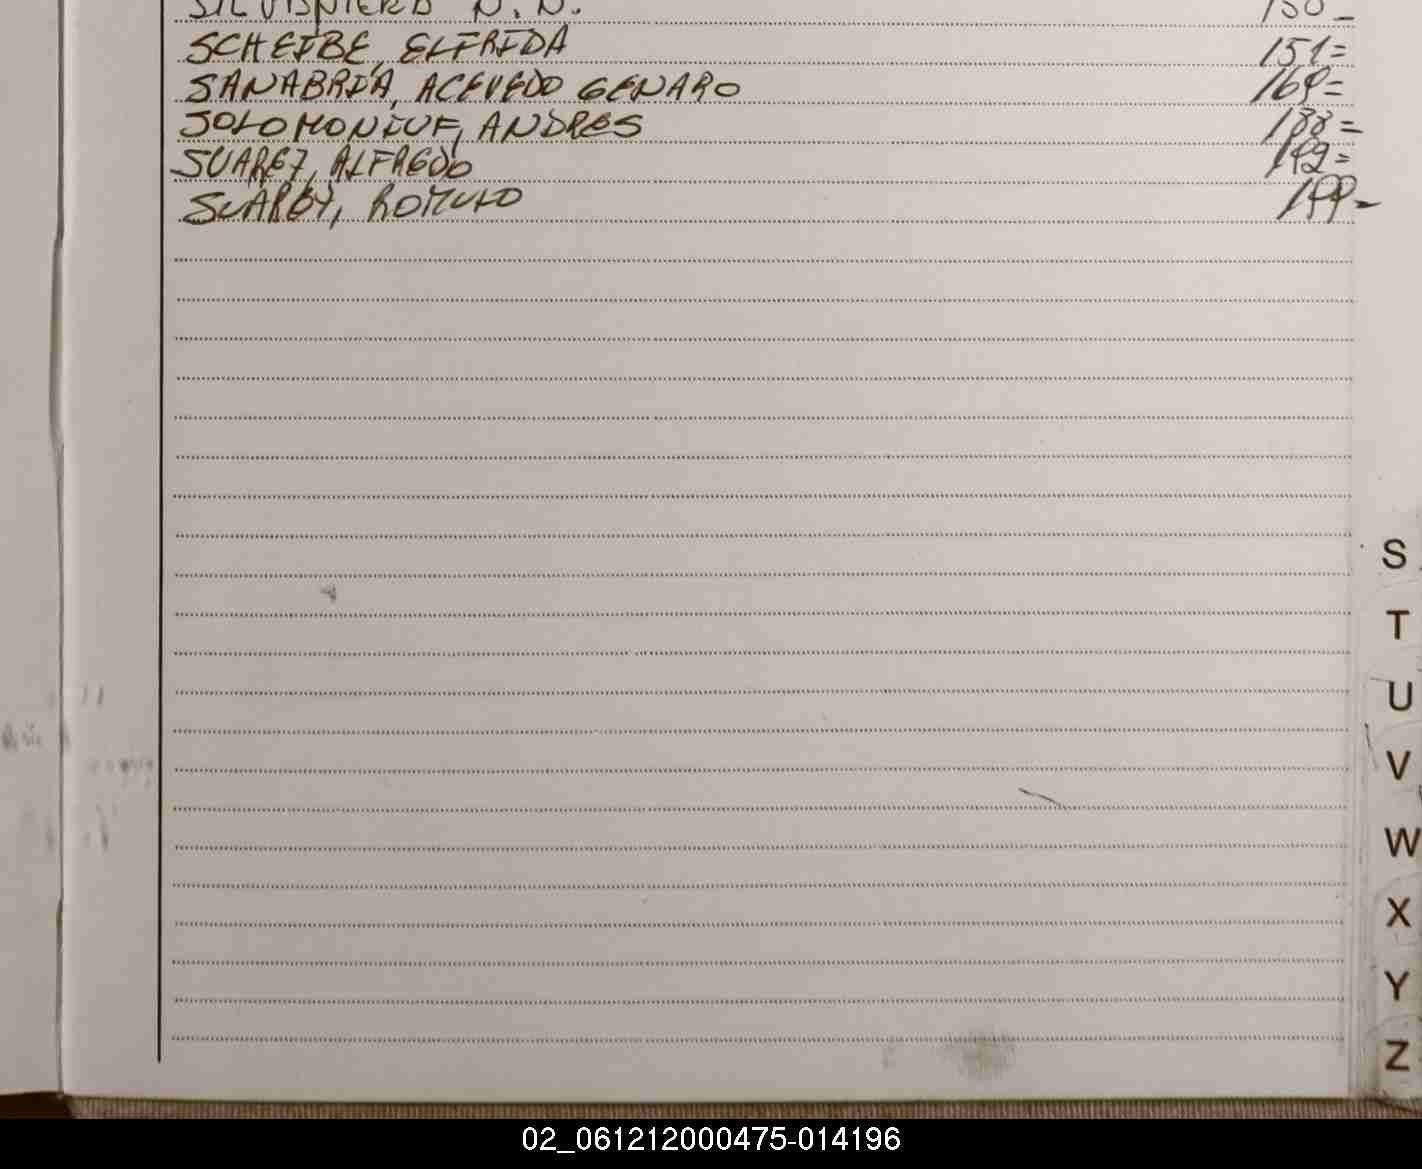 N. N. 150=
SCHEIBE, ELFRIDA 151=
SANABRIA, ACEVEDO GENARO 169=
SOLOMONIUF, ANDRES 188=
SUAREZ, ALFREDO 192=
SUAREZ, ROMULO 199=
S
T
U
V
W
X
Y
Z
02_061212000475-014196